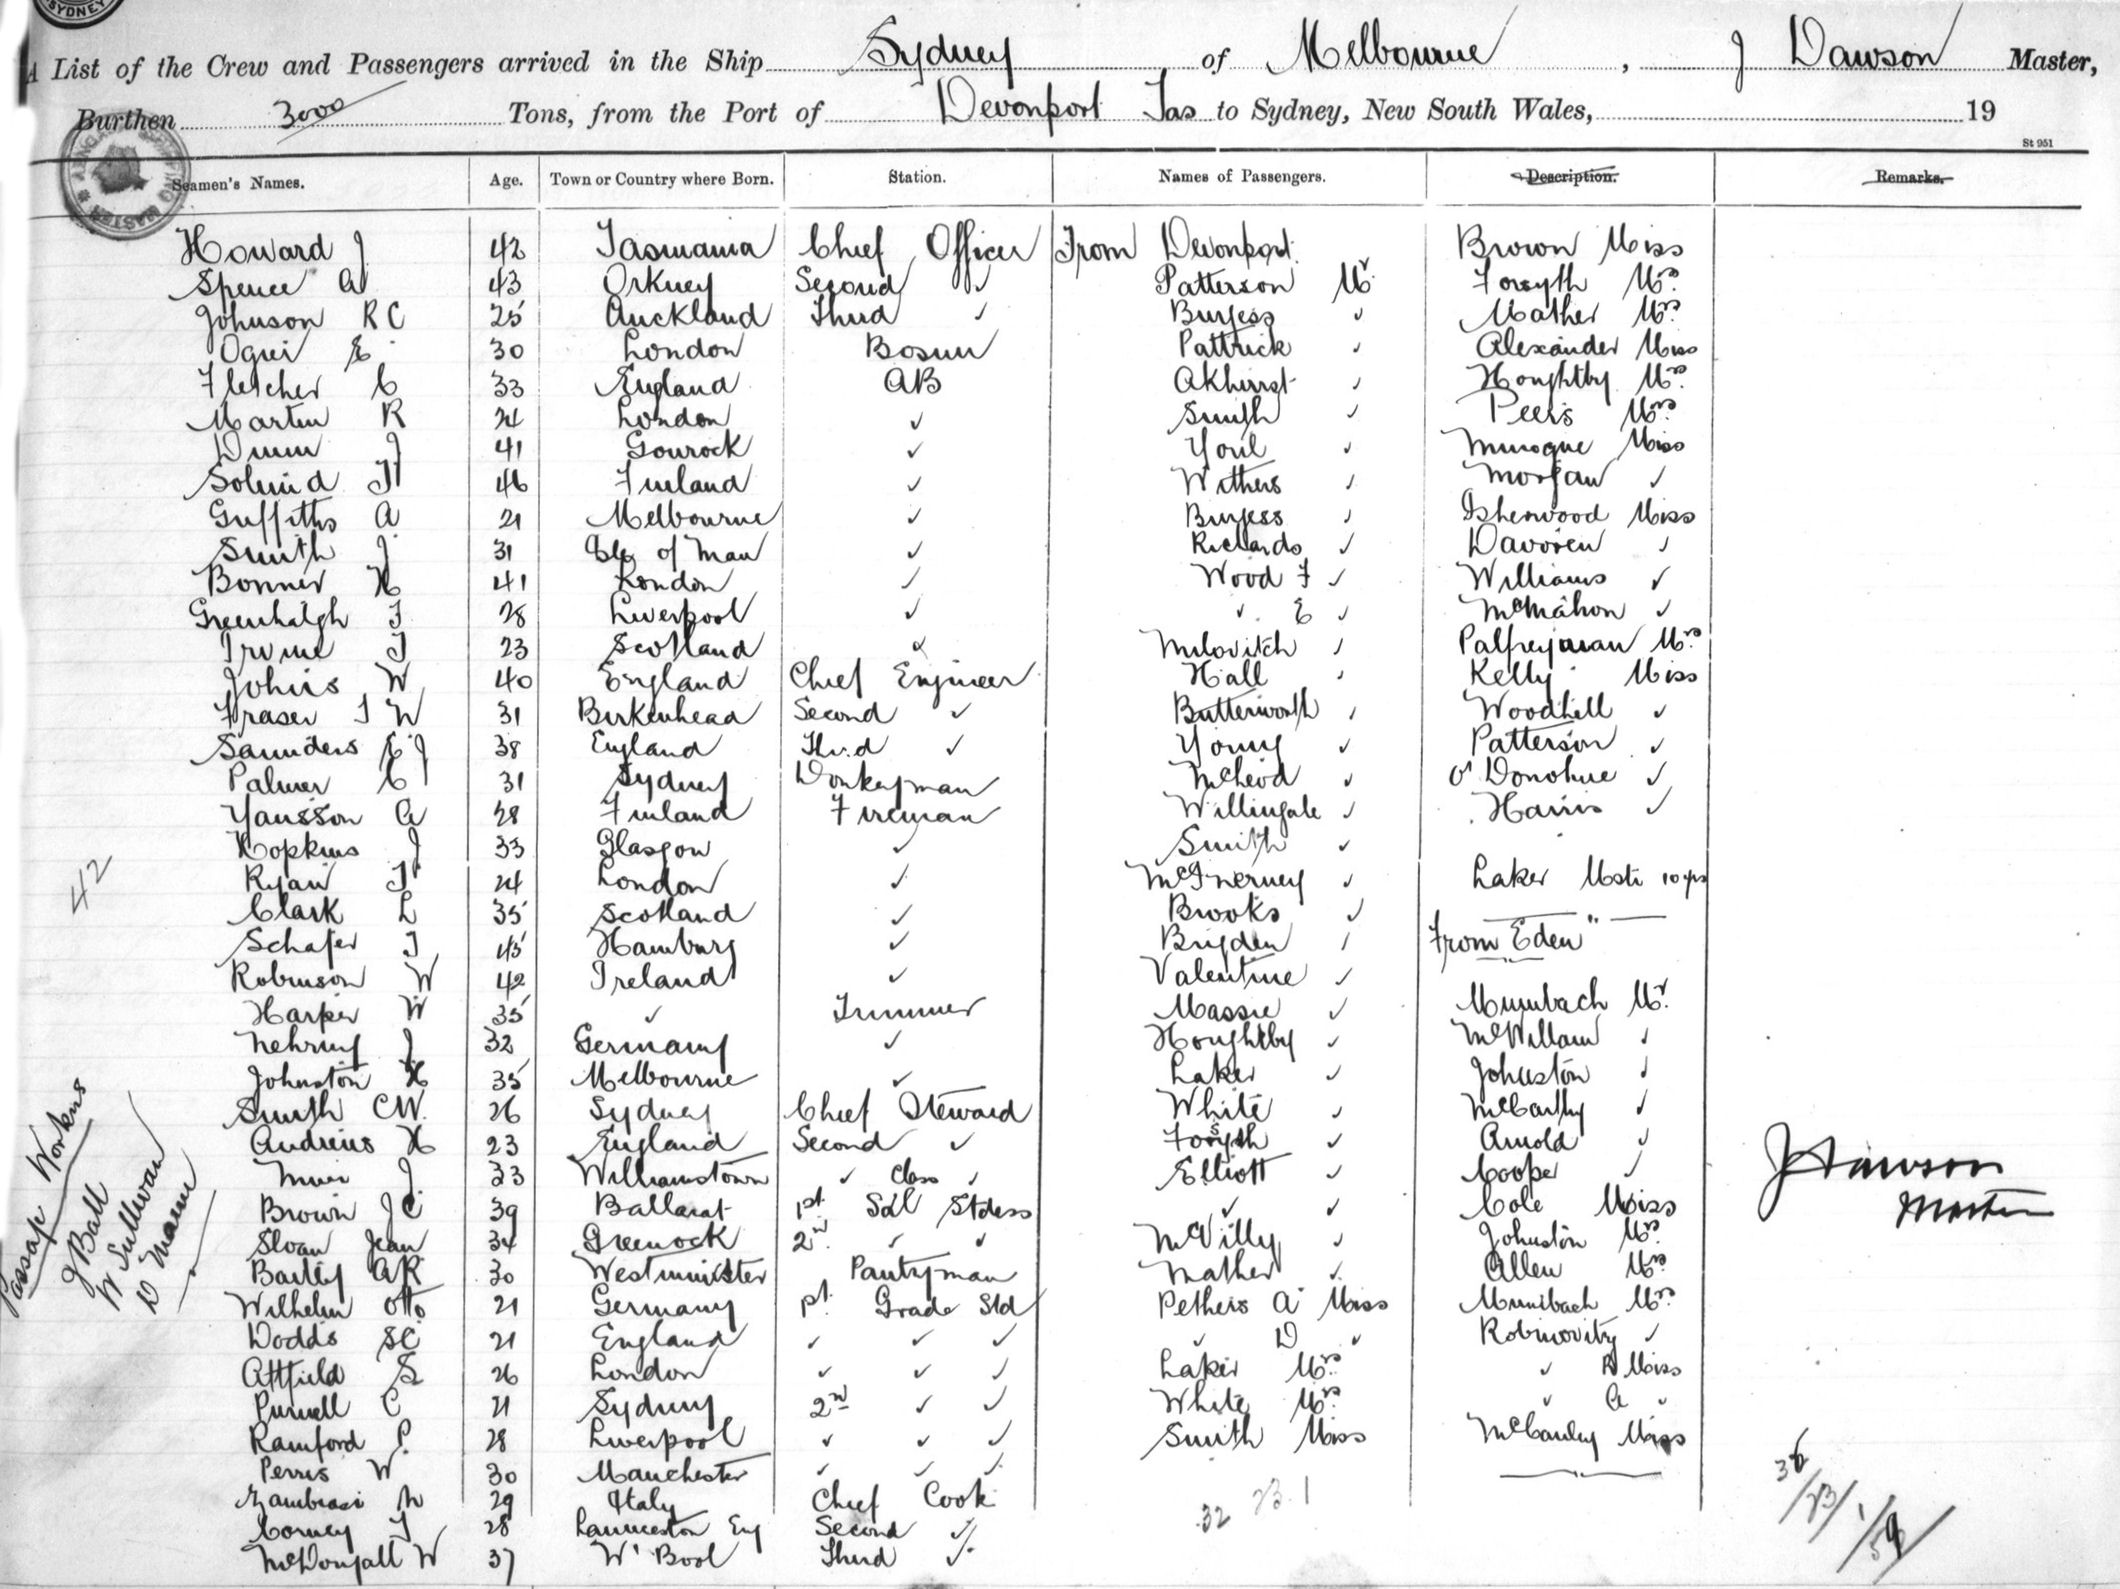 SYDNEY
A List of the Crew and Passengers arrived in the Ship Sydney of Melbourne, J Dawson Master,
Burthen 3000 Tons, from the Port of Devonport Tas to Sydney, New South Wales, 19
St 951
Seamen's Names. Age. Town or Country where Born. Station. Names of Passengers. Description. Remarks.
Howard J 42 Tasmania Chief Officer From Devonport Brown Miss
Spence A 43 Orkney Second ✓ Patterson Mr Forsyth Mrs
Johnson R C 25 Auckland Third ✓ Burgess ✓ Mather Mrs
E 30 London Bosun Pattrick ✓ Alexander Miss
Fletcher C 33 England AB Akhurst ✓ Houghtby Mrs
Martin R 24 London ✓ Smith ✓ Peers Mrs
Dunn J 41 Gourock ✓ Youl ✓ Minogue Miss
46 Finland ✓ Withers ✓ Morgan ✓
Griffiths A 21 Melbourne ✓ Burgess ✓ Isherwood Miss
Smith J 31 Isle of Man ✓ Richards ✓ Davoren ✓
Bonner H 41 London ✓ Wood F ✓ Williams ✓
Greenhalgh T 28 Liverpool ✓ ✓ E ✓ McMahon ✓
Irvine T 23 Scotland ✓ Milovitch ✓ Palfreyman Mrs
Johns W 40 England Chief Engineer Hall ✓ Kelly Miss
Fraser T W 31 Birkenhead Second ✓ Butterworth ✓ Woodhill ✓
Saunders E J 38 England Third ✓ Young ✓ Patterson ✓
Palmer C 31 Sydney Donkeyman McLeod ✓ O'Donohue ✓
Yansson A 28 Finland Fireman Willingale ✓ Harris ✓
Hopkins J 33 Glasgow ✓ Smith ✓
Ryan T 24 London ✓ McInerney ✓ Laker Mstr 10 yrs
Clark L 35 Scotland ✓ Brooks ✓
Schafer T 45 Hamburg ✓ Brigden ✓ From Eden
Robinson W 42 Ireland ✓ Valentine ✓
Harper W 35 ✓ Trimmer Massie ✓ Mumbach Mr
Nehring J 32 Germany ✓ Houghtby ✓ McWilliam ✓
Johnston H 35 Melbourne ✓ Laker ✓ Johnston ✓
Smith C W. 26 Sydney Chief Steward White ✓ McCarthy ✓
Andrews H 23 England Second ✓ Forsyth ✓ Arnold ✓
Muir J. 33 Williamstown ✓ Class ✓ Elliott ✓ Cooper ✓
Brown J C 39 Ballarat 1st Sal Stdess ✓ ✓ Cole Miss
Sloan Jean 34 Greenock 2nd ✓ ✓ McVilly ✓ Johnston Mrs
Bartley A R 30 Westminister Pantryman Mather ✓ Allen Mrs
Wilhelm Otto 21 Germany 1st Grade Std Pethers A Miss Mumbach Mrs
Dodds S C 21 England ✓ ✓ ✓ ✓ D ✓ Robinovitz ✓
Attfield S 26 London ✓ ✓ ✓ Laker Mrs ✓ R Miss
Purnell C 21 Sydney 2nd ✓ ✓ White Mrs ✓ A ✓
Ramford P. 28 Liverpool ✓ ✓ ✓ Smith Miss McCauley Miss
Perris W 30 Manchester ✓ ✓ ✓
Zambrasi N 29 Italy Chief Cook
Corney T 28 Launceston Eng Second ✓
McDougall W 37 W'Bool Third ✓
42
Passage Workers
J Ball
W Sullivan
D Mann
J Dawson
Master
32 23 1
36/23/1/59